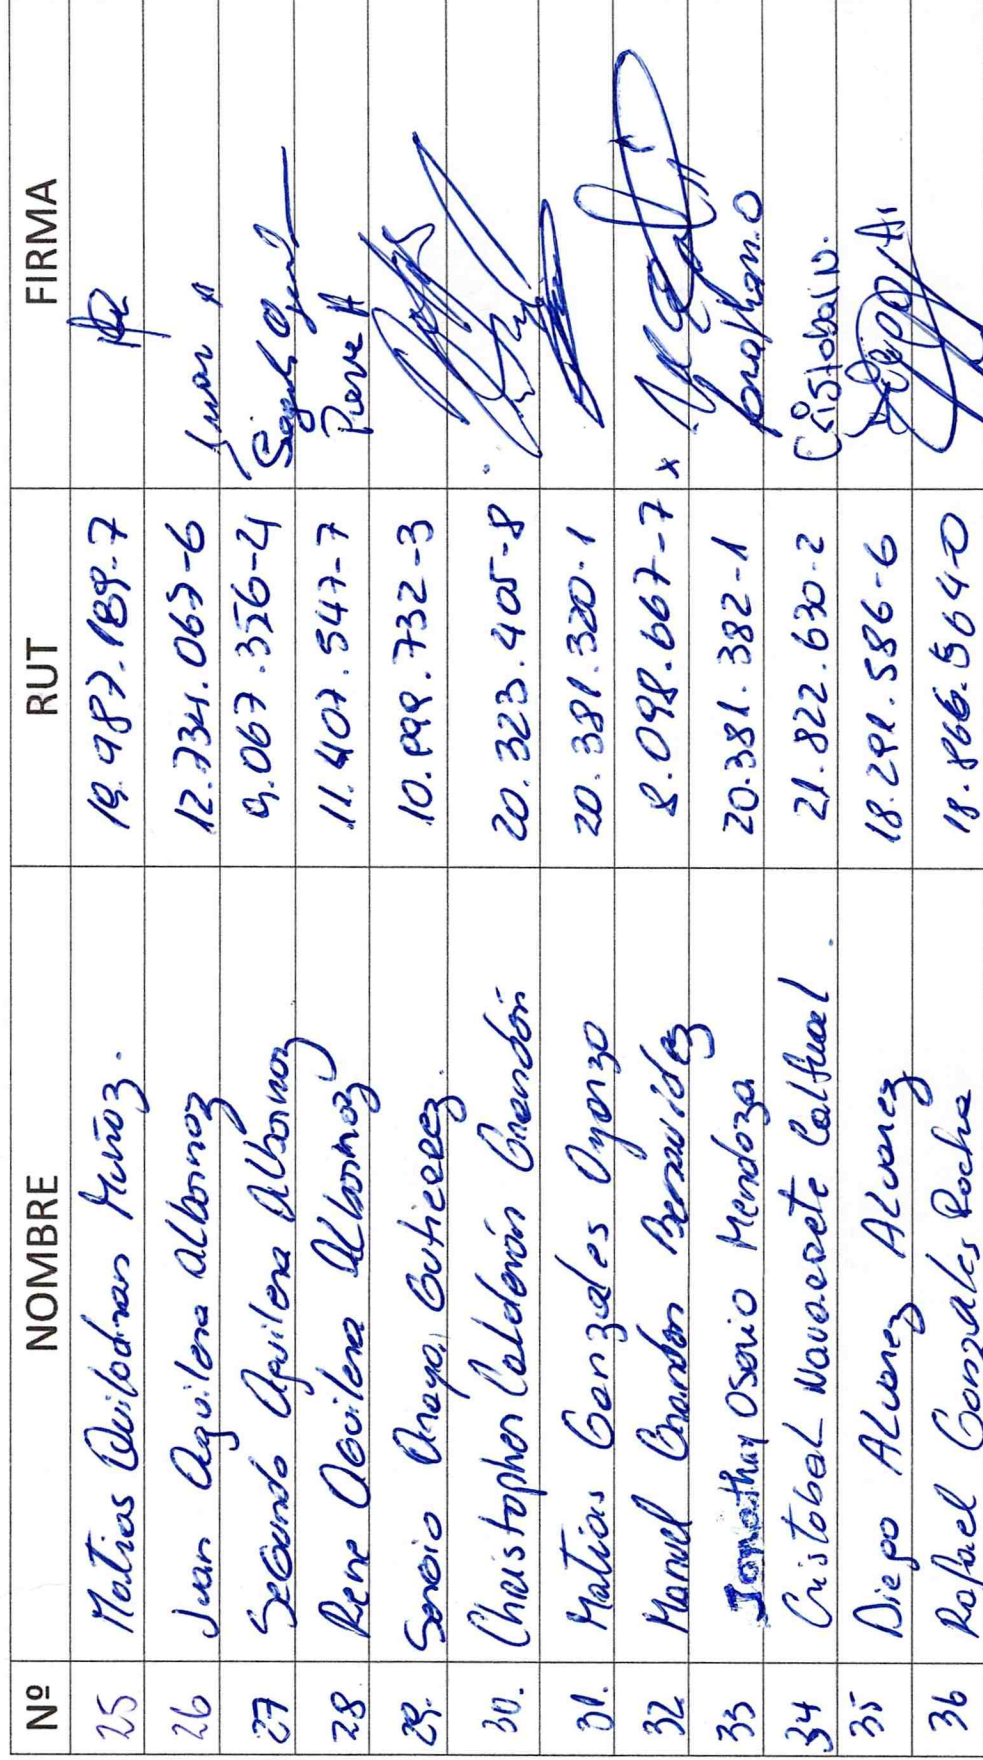 Nº NOMBRE RUT FIRMA
25 Matias Quilodran Muñoz. 19.987.189-7
26 Juan Aguilera Albornoz 12.734.067-6 Juan A
27 Segundo Aguilera Albornoz 9.067.326-4 Segundo
28 Rene Aguilera Albornoz 11.407.547-7 Rene A
29. Sergio Anaya Gutierrez 10.999.732-3
30. Christopher Calderón Grandón 20.323.405-8
31. Matias Gonzales Oyarzo 20.381.320-1
32 Manuel Grandón Benavidez 8.098.667-7 x
33 Jonathan Osorio Mendoza 20.381.382-1 Jonathan.O
34 Cristobal Navarrete Calfual 21.822.630-2 Cristobal N.
35 Diego ALvarez ALvarez 18.291.586-6 Diego A
36 Rafael Gonzales Rocha 18.866.564-0